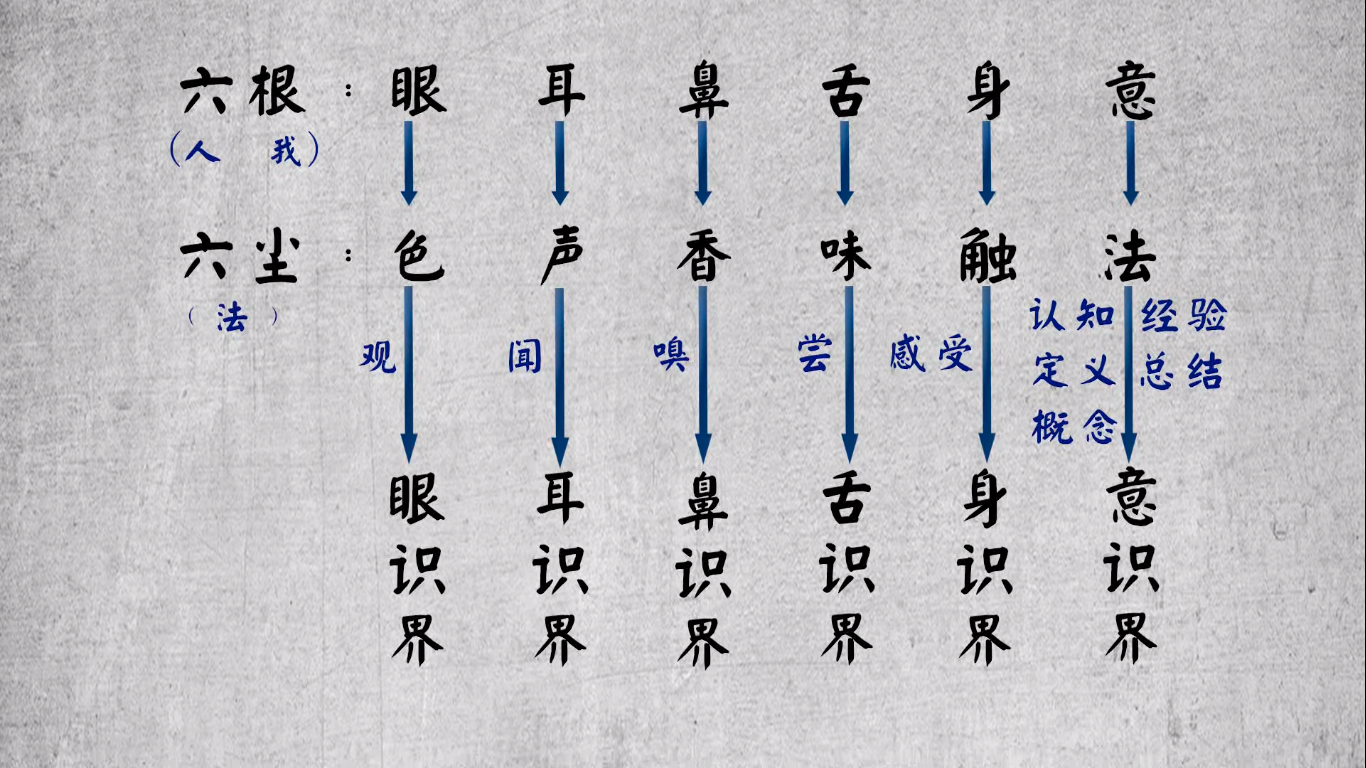 六根：眼 耳 鼻 舌 身 意
（人 我）
六尘：色 声 香 味 触 法
（法）
观 闻 嗅 尝 感受
认知 经验
定义 总结
概念
眼 耳 鼻 舌 身 意
识 识 识 识 识 识
界 界 界 界 界 界